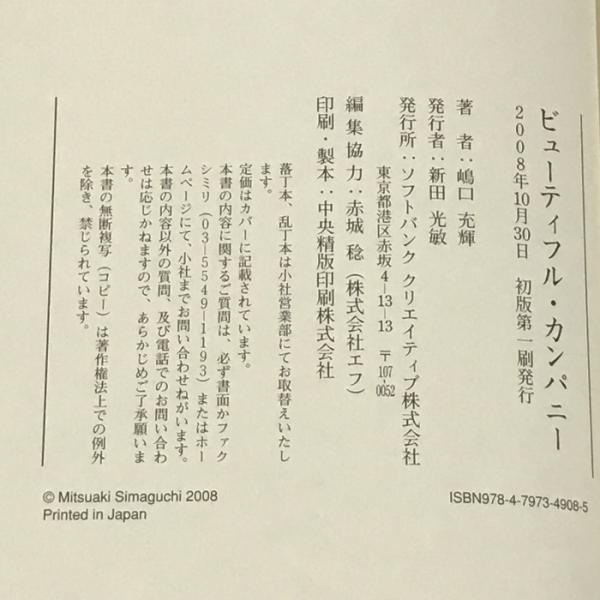 ビューティフル・カンパニー
2008年10月30日 初版第一刷発行
著 者：嶋口 充輝
発行者：新田 光敏
発行所：ソフトバンク クリエイティブ株式会社
東京都港区赤坂4-13-13 〒107-0052
編集協力：赤城 稔（株式会社エフ）
印刷・製本：中央精版印刷株式会社
落丁本、乱丁本は小社営業部にてお取替えいたし
ます。
定価はカバーに記載されています。
本書の内容に関するご質問は、必ず書面かファク
シミリ（03-5549-1193）またはホー
ムページにて、小社までお問い合わせねがいます。
本書の内容以外の質問、及び電話でのお問い合わ
せは応じかねますので、あらかじめご了承願いま
す。
本書の無断複写（コピー）は著作権法上での例外
を除き、禁じられています。
© Mitsuaki Simaguchi 2008
Printed in Japan
ISBN978-4-7973-4908-5